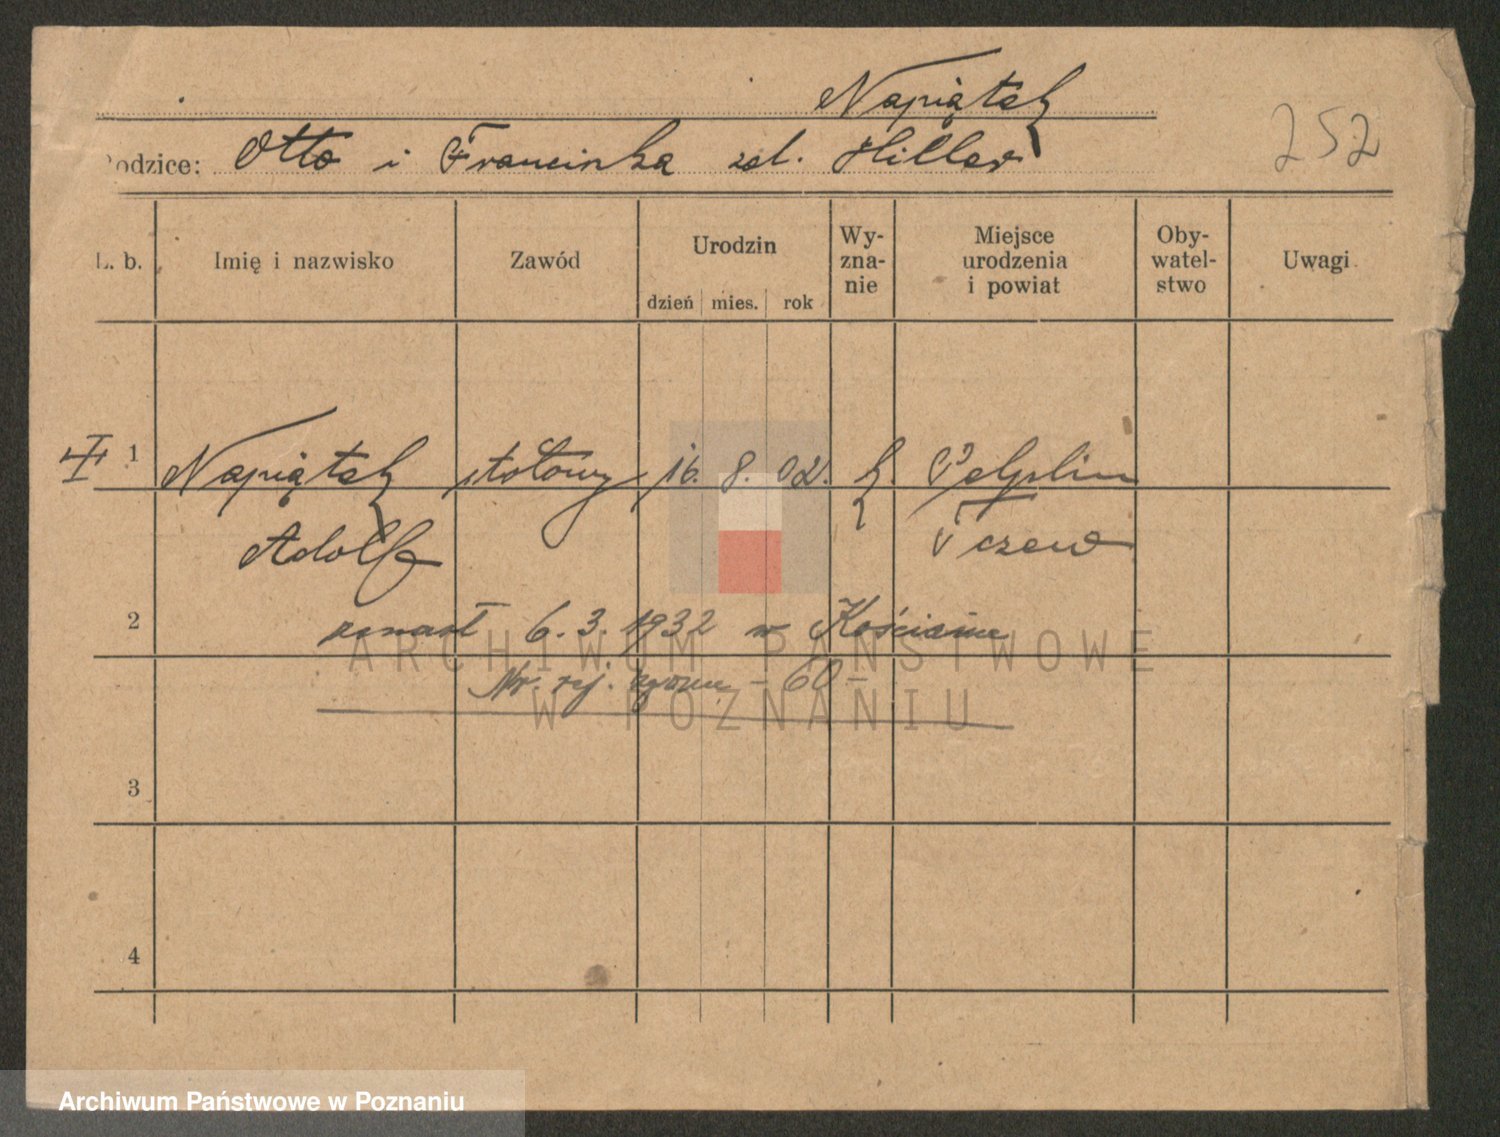 Napiątek
252
Rodzice: Otto i Franciszka zd. Hiller
L. b. Imię i nazwisko Zawód Urodzin dzień mies. rok Wy-zna-nie Miejsce urodzenia i powiat Oby-watel-stwo Uwagi
1 Napiątek stołowy 16. 8. 02. k. Pelplin
Adolf Tczew
2 zmarł 6. 3. 1932 w Kościanie
Nr. rej. zgonu – 60 –
3
4
ARCHIWUM PAŃSTWOWE
W POZNANIU
Archiwum Państwowe w Poznaniu